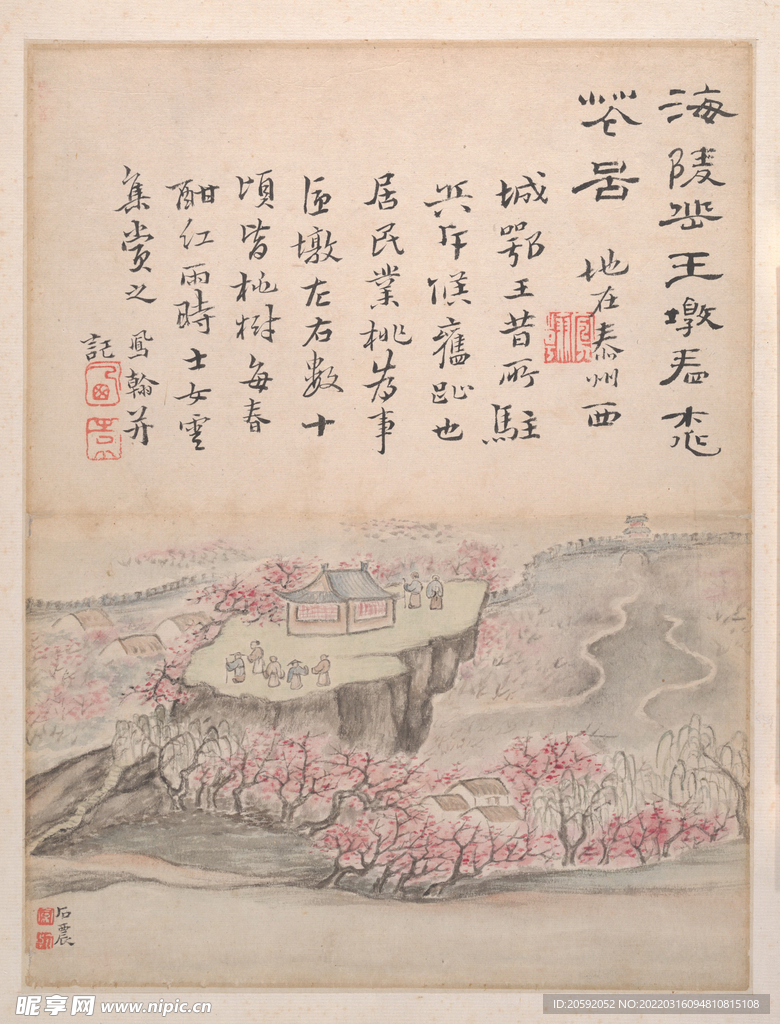 海陵岳王墩看桃
花啚 地在泰州西
城鄂王昔所駐
兵斥候舊趾也
居民業桃為事
匝墩左右數十
頃皆桃樹每春
酣紅雨時士女雲
集賞之 鳳翰并
記
石震
昵享网 www.nipic.cn
ID:20592052 NO:20220316094810815108